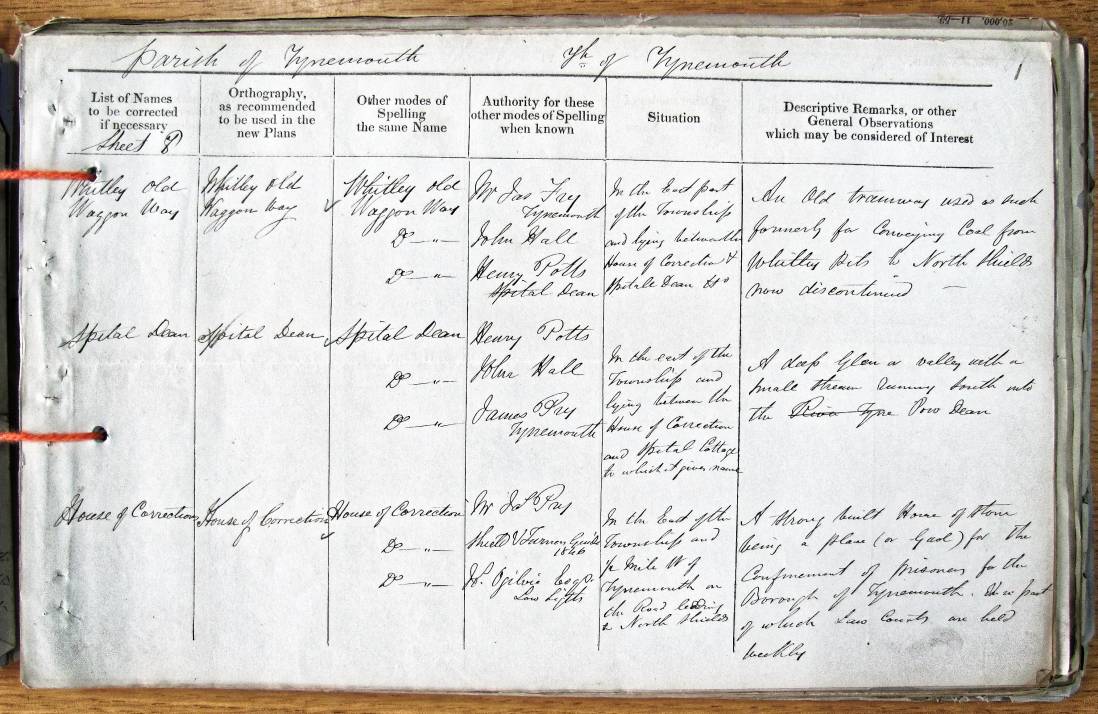 Parish of Tynemouth Tp. of Tynemouth 1
List of Names
to be corrected
if necessary
Sheet 8
Orthography,
as recommended
to be used in the
new Plans
Other modes of
Spelling
the same Name
Authority for these
other modes of Spelling
when known
Situation
Descriptive Remarks, or other
General Observations
which may be considered of Interest
Whitley Old
Waggon Way
Whitley Old
Waggon Way
Whitley Old
Waggon Way
Do
Do
Mr Jas Fry
Tynemouth
John Hall
Henry Potts
Spital Dean
In the East part
of the Township
and lying between the
House of Correction &
Spital Dean
An Old tramway used as such
formerly for Conveying Coal from
Whitley pits to North Shields
now discontinued
Spital Dean
Spital Dean
Spital Dean
Do
Do
Henry Potts
John Hall
James Fry
Tynemouth
In the east of the
Township and
lying between the
House of Correction
and Spital Cottage
to which it gives name
A deep Glen or valley with a
small stream running South into
the River Tyne Pow Dean
House of Correction
House of Correction
House of Correction
Do
Do
Mr Jas Fry
Guide
1846
W. Ogilvie Esqr.
Low Lights
In the East of the
Township and
½ Mile W of
Tynemouth on
the Road leading
to North Shields
A strong built House of Stone
being a place (or Gaol) for the
Confinement of prisoners for the
Borough of Tynemouth. In a part
of which Law Courts are held
weekly